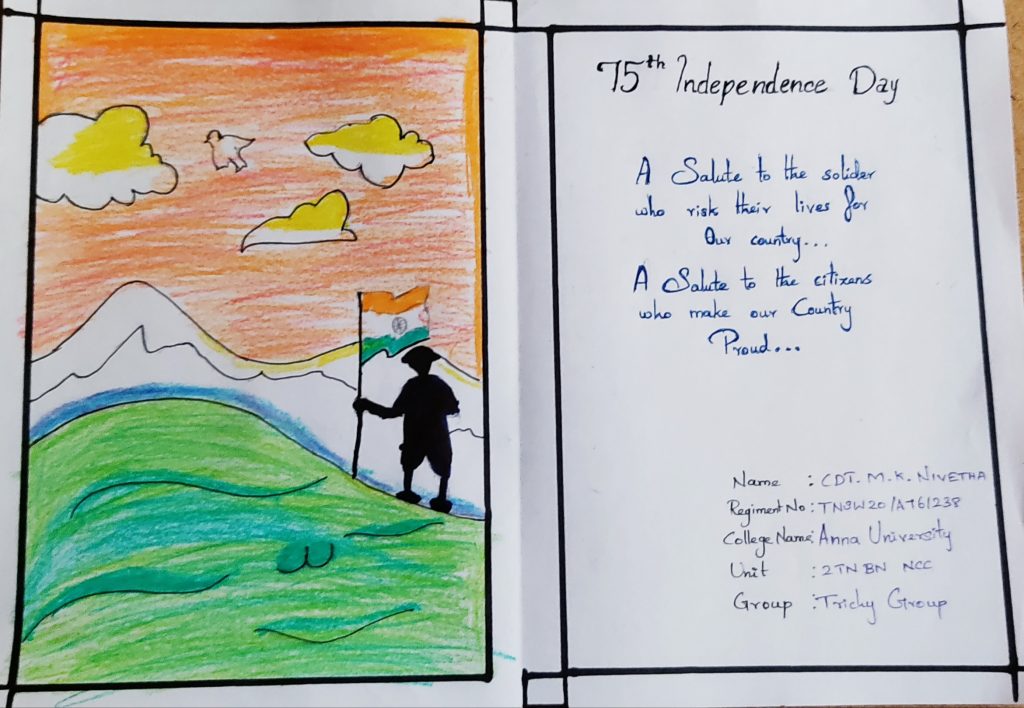 75th Independence Day
A Salute to the solider
who risk their lives for
Our country...
A Salute to the citizens
who make our Country
Proud...
Name : CDT. M. K. NIVETHA
Regiment No : TN3W20/A761238
College Name: Anna University
Unit : 2TN BN NCC
Group : Trichy Group